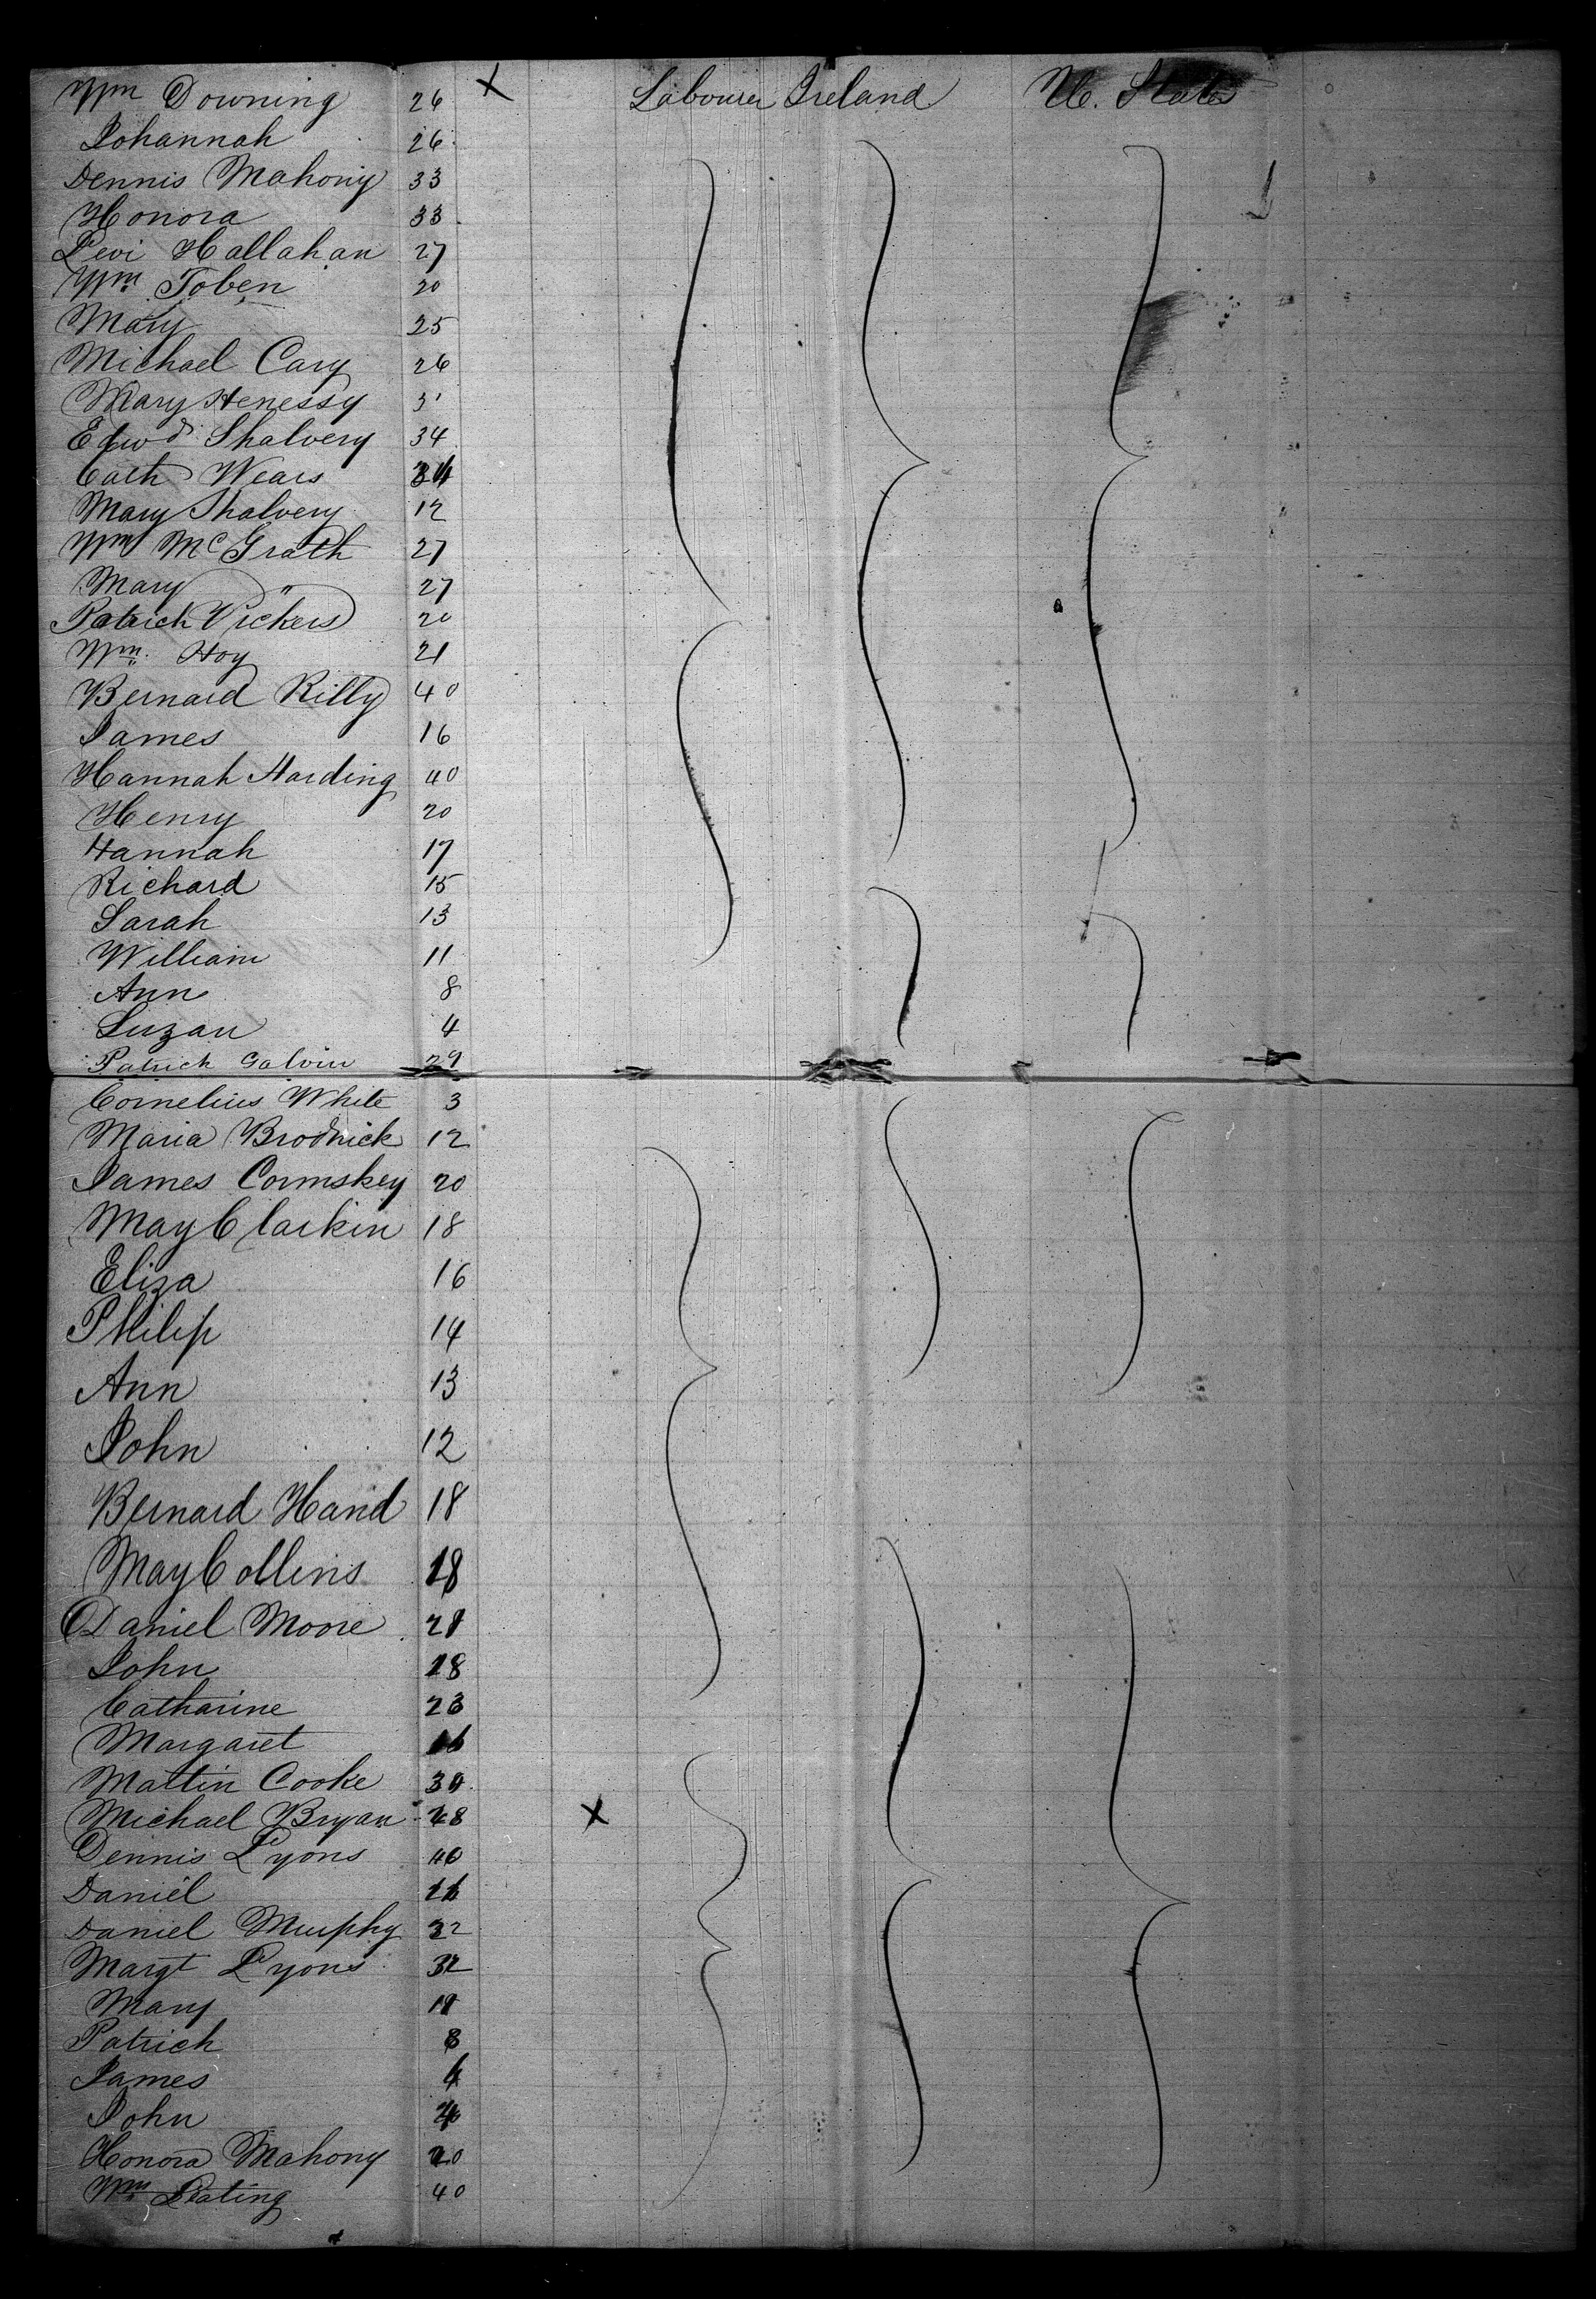 Wm Downing 26 X Labourer Ireland U. States
Johannah 26
Dennis Mahony 33
Honora 33
Levi Hallahan 27
Wm Toben 20
Mary 25
Michael Cary 26
Mary Henessy 31
Edwd Shalvery 34
Cath Wears 34
Mary Shalvery 12
Wm McGrath 27
Mary " 27
Patrick Vickers 20
Wm. Hoy 21
Bernard Rilly 40
James 16
Hannah Harding 40
Henry 20
Hannah 17
Richard 15
Sarah 13
William 11
Ann 8
Suzan 4
Patrick Galvin 29
Cornelius White 3
Maria Brodrick 12
James Cormskey 20
May Clarkin 18
Eliza 16
Philip 14
Ann 13
John 12
Bernard Hand 18
May Collins 18
Daniel Moore 28
John 18
Catharine 23
Margaret
Martin Cooke 30
Michael Bryan 48 X
Dennis Lyons 40
Daniel 11
Daniel Murphy 32
Margt Lyons 32
Mary
Patrick 8
James
John
Honora Mahony 20
Wm Keating 40